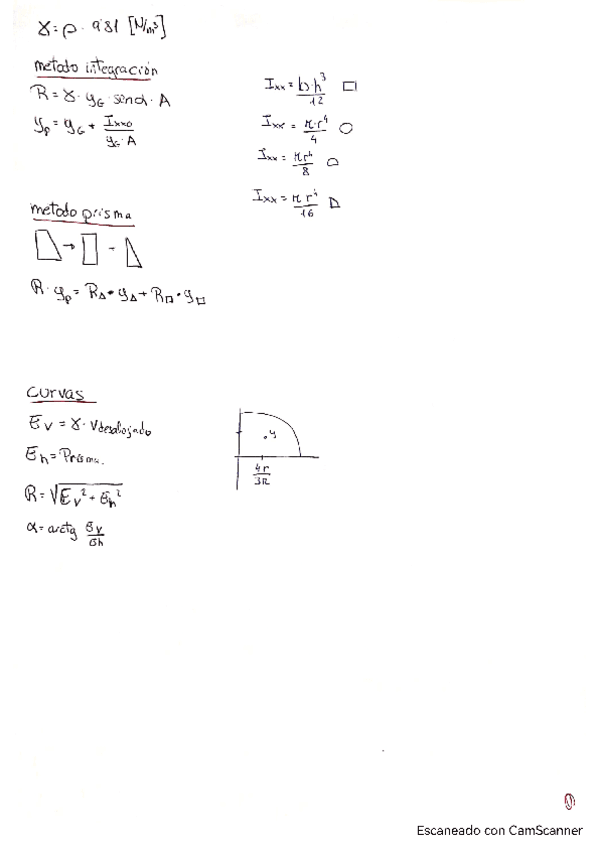 γ = ρ · 9'81 [N/m³]
metodo integración
R = γ · yG · senα · A
yp = yG + Ixxo / yG · A
Ixx = b·h³ / 12
Ixx = π·r⁴ / 4
Ixx = πr⁴ / 8
Ixx = πr⁴ / 16
metodo prisma
R · yp = R△ · y△ + R□ · y□
curvas
Ev = γ · Vdesalojado
Eh = Prisma.
R = √Ev² + Eh²
α = arctg Ev / Eh
y
4r / 3π
1
Escaneado con CamScanner